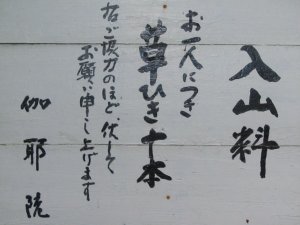 入山料
お一人につき
草ひき十本
右ご協力のほど、伏して
お願い申し上げます
伽耶院